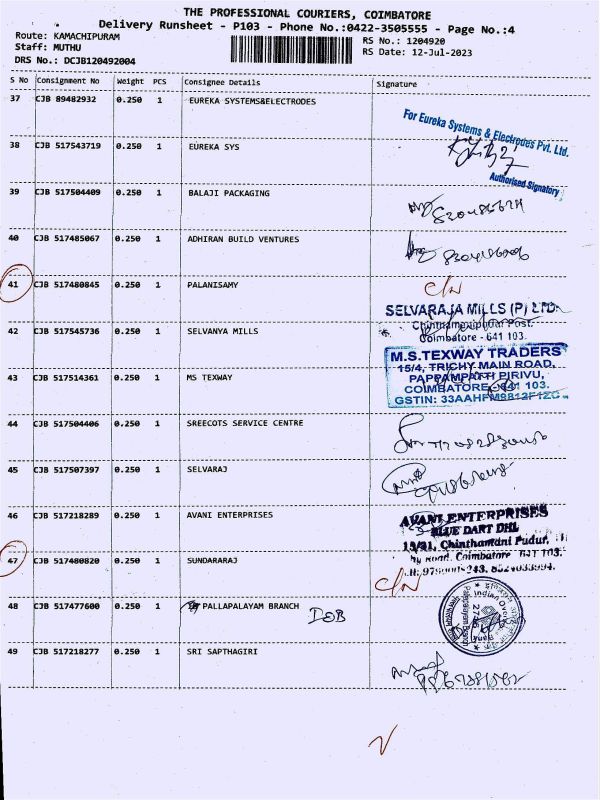 THE PROFESSIONAL COURIERS, COIMBATORE
Delivery Runsheet - P103 - Phone No.:0422-3505555 - Page No.:4
Route: KAMACHIPURAM
RS No.: 1204920
Staff: MUTHU
RS Date: 12-Jul-2023
DRS No.: DCJB120492004
S No Consignment No Weight PCS Consignee Details Signature
37 CJB 89482932 0.250 1 EUREKA SYSTEMS&ELECTRODES
For Eureka Systems & Electrodes Pvt. Ltd.
38 CJB 517543719 0.250 1 EUREKA SYS
Authorised Signatory
39 CJB 517504409 0.250 1 BALAJI PACKAGING
40 CJB 517485067 0.250 1 ADHIRAN BUILD VENTURES
41 CJB 517480845 0.250 1 PALANISAMY
SELVARAJA MILLS (P) LTD.
Post.
42 CJB 517545736 0.250 1 SELVANYA MILLS
Coimbatore - 641 103.
M.S.TEXWAY TRADERS
15/4, TRICHY MAIN ROAD,
43 CJB 517514361 0.250 1 MS TEXWAY
PAPPAMPATTI PIRIVU,
COIMBATORE - 641 103.
GSTIN:
44 CJB 517504406 0.250 1 SREECOTS SERVICE CENTRE
45 CJB 517507397 0.250 1 SELVARAJ
46 CJB 517218289 0.250 1 AVANI ENTERPRISES
AVANI ENTERPRISES
BLUE DART DHL
Chinthamani Pudur,
Road, Coimbatore 641 103.
47 CJB 517480820 0.250 1 SUNDARARAJ
48 CJB 517477600 0.250 1 PALLAPALAYAM BRANCH
Indian Overseas Bank
49 CJB 517218277 0.250 1 SRI SAPTHAGIRI